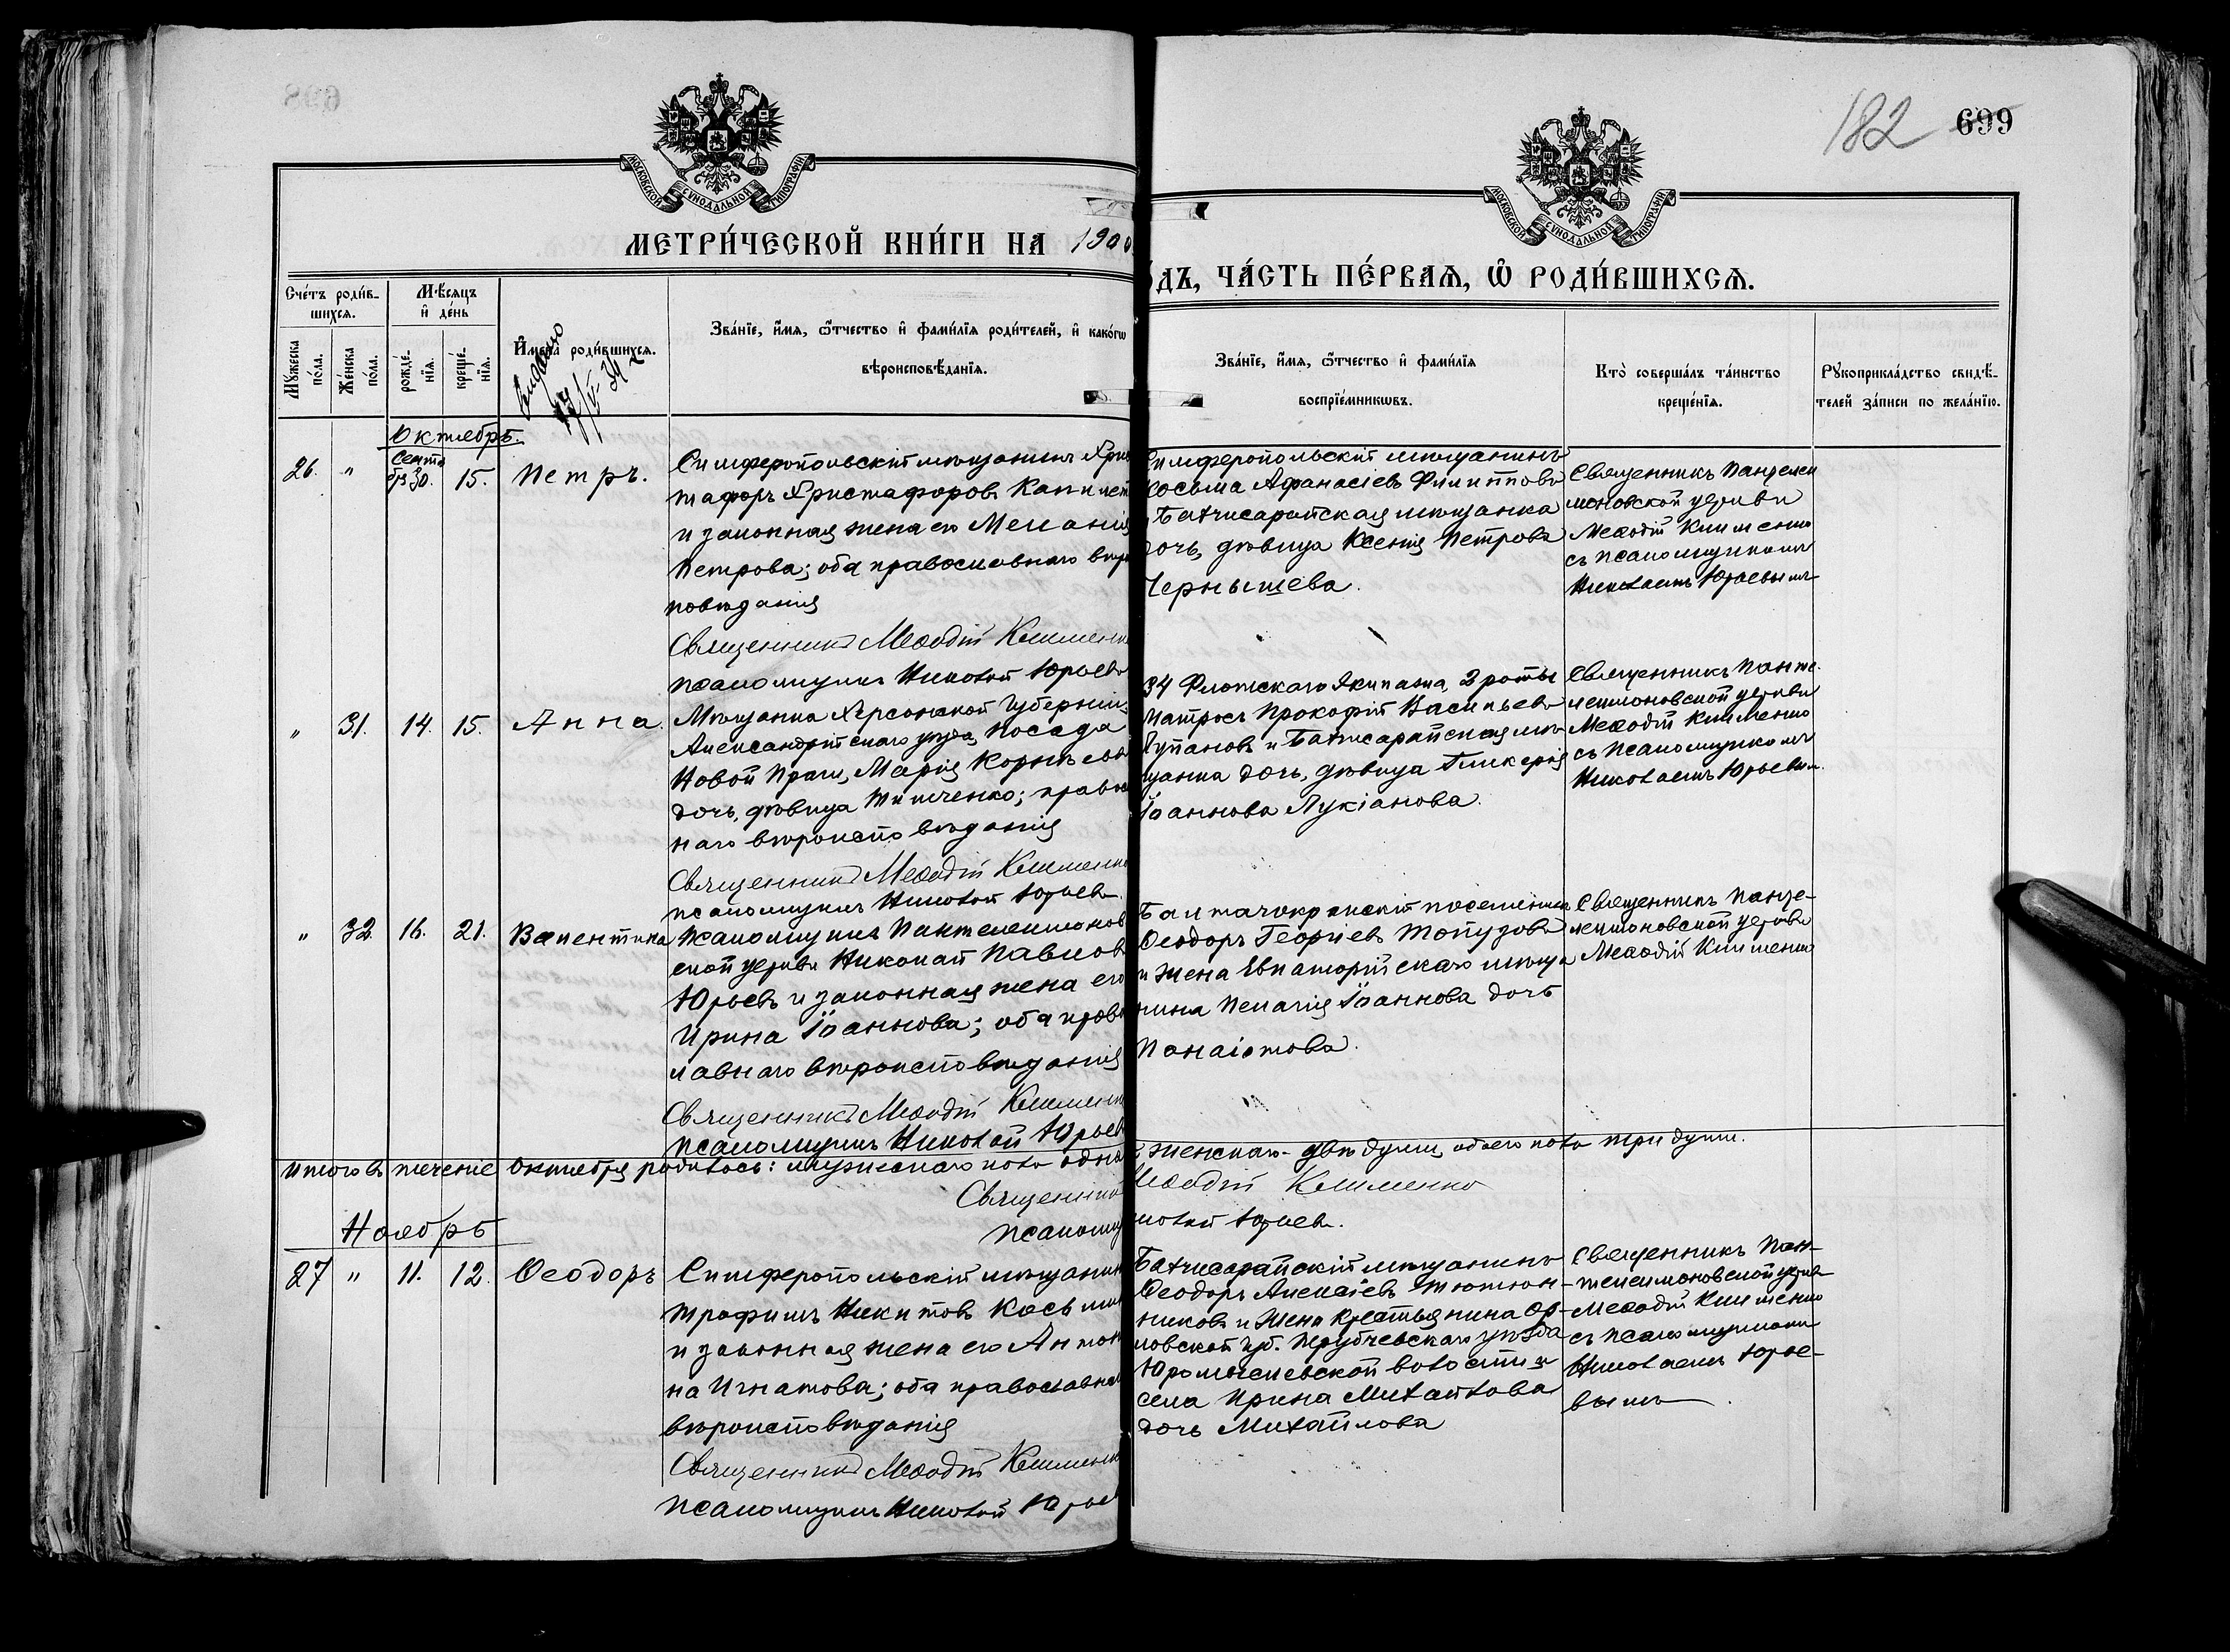 182 699
МОСКОВСКОЙ СУНОДАЛЬНОЙ ТИПОГРАФІИ
МЕТРИ́ЧЕСКОЙ КНИ́ГИ НА 1900
МОСКОВСКОЙ СУНОДАЛЬНОЙ ТИПОГРАФІИ
ДЪ, ЧА́СТЬ ПЕ́РВАЯ, Ѡ РОДИ́ВШИХСЯ.
Сче́тъ роди́в-
шихся.
Му́жеска по́ла.
Же́нска по́ла.
Мѣ́сяцъ
и де́нь
рожде́-
нїя.
креще́-
нїя.
Имена̀ роди́вшихся.
Зва́нїе, и́мя, ѻ́тчество и фами́лїя роди́телей, и како́гѡ
вѣроисповѣ́данїя.
Зва́нїе, и́мя, ѻ́тчество и фами́лїя
воспрїе́мникѡвъ.
Кто̀ соверша́лъ та́инство
креще́нїя.
Рꙋкоприкла́дство свидѣ́-
телей за́писи по жела́нїю.
Октябрь.
26. " Сентя
бр. 30. 15. Петръ.
Симферопольскій мѣщанинъ Хрис
тафоръ Христафоровъ
и законная жена его Меланія
Петрова; оба православнаго вѣро
повѣданія
Священникъ Меѳодій Клименко
Псаломщикъ Николай Юрьевъ
Симферопольскій мѣщанинъ
Косьма Аѳанасіевъ Филипповъ
Бахчисарайская мѣщанка
дочь, дѣвица Ксенія Петрова
Чернышева.
Священникъ Пантелеи
моновской церкви
Меѳодій Клименко
съ псаломщикомъ
Николаемъ Юрьевымъ
" 31. 14. 15. Анна.
Мѣщанка Херсонской Губерніи,
Александрійскаго уѣзда, посада
Новой Праги, Марія Корнѣева
дочь, дѣвица; право
наго вѣроисповѣданія
Священникъ Меѳодій Клименко
псаломщикъ Николай Юрьевъ
34 Флотскаго Экипажа, 2 роты
матросъ Прокофій Васильевъ
Лупановъ и Бахчисарайская мѣ
щанка дочь, дѣвица Гликерія
Іоаннова Лукіанова.
Священникъ Панте-
леимоновской церкви
Меѳодій Клименко
съ псаломщикомъ
Николаемъ Юрьевым.
" 32. 16. 21. Валентина
Псаломщикъ Пантелеимонов
ской церкви Николай Павловъ
Юрьевъ и законная жена его
Ирина Іоаннова; оба правос
лавнаго вѣроисповѣданія
Священникъ Меѳодій Клименко
псаломщикъ Николай Юрьевъ
Балтачокракскій поселянинъ
Ѳеодоръ Георгіевъ Топузовъ
и жена Евпаторійскаго мѣща
нина Пелагія Іоаннова дочь
Панаіотова.
Священникъ Панте-
леимоновской церкви
Меѳодій Клименко
Итого въ теченіе Октября родилось: мужескаго пола одна
женскаго - двѣ души, обоего пола три души.
Священникъ Меѳодій Клименко
псаломщ иколай Юрьевъ.
Ноябрь
27 " 11. 12. Ѳеодоръ
Симферопольскій мѣщанин
Трофимъ Никитовъ Косьмин
и законная жена его Антон
на Игнатова; оба православна
вѣроисповѣданія
Священникъ Меѳодій Клименко
псаломщикъ Николай Юрьев
Бахчисарайскій мѣщанинъ
Ѳеодоръ Алексіевъ Тютюн-
никовъ и жена крестьянина Ор-
ловской губ. Трубчевскаго уѣзда
волости и
села Ирина Михаилова
дочь Михайлова
Священникъ Пан-
телеимоновской церкв
Меѳодій Клименко
съ псаломщикомъ
Николаемъ Юрье-
вымъ.